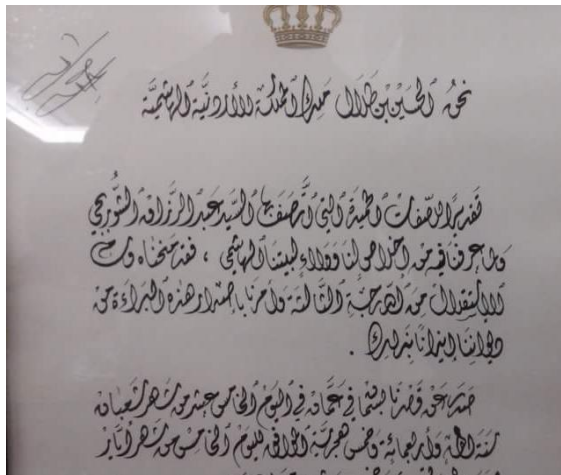 نحن الحسين بن طلال ملك المملكة الأردنية الهاشمية
تقديرًا للصفات الحميدة التي اتصف بها السيد عبد الرزاق الشوربجي
ولما عرفنا فيه من إخلاص لنا وولاء لبيتنا الهاشمي ، فقد منحناه وسام
الاستقلال من الدرجة الثالثة وأمرنا بإصدار هذه البراءة من
ديواننا إيذانًا بذلك .
صدر عن قصرنا بسمان في عمّان في اليوم الخامس عشر من شهر شعبان
سنة ألف وأربعمائة وخمس هجرية الموافق لليوم الخامس من شهر أيار